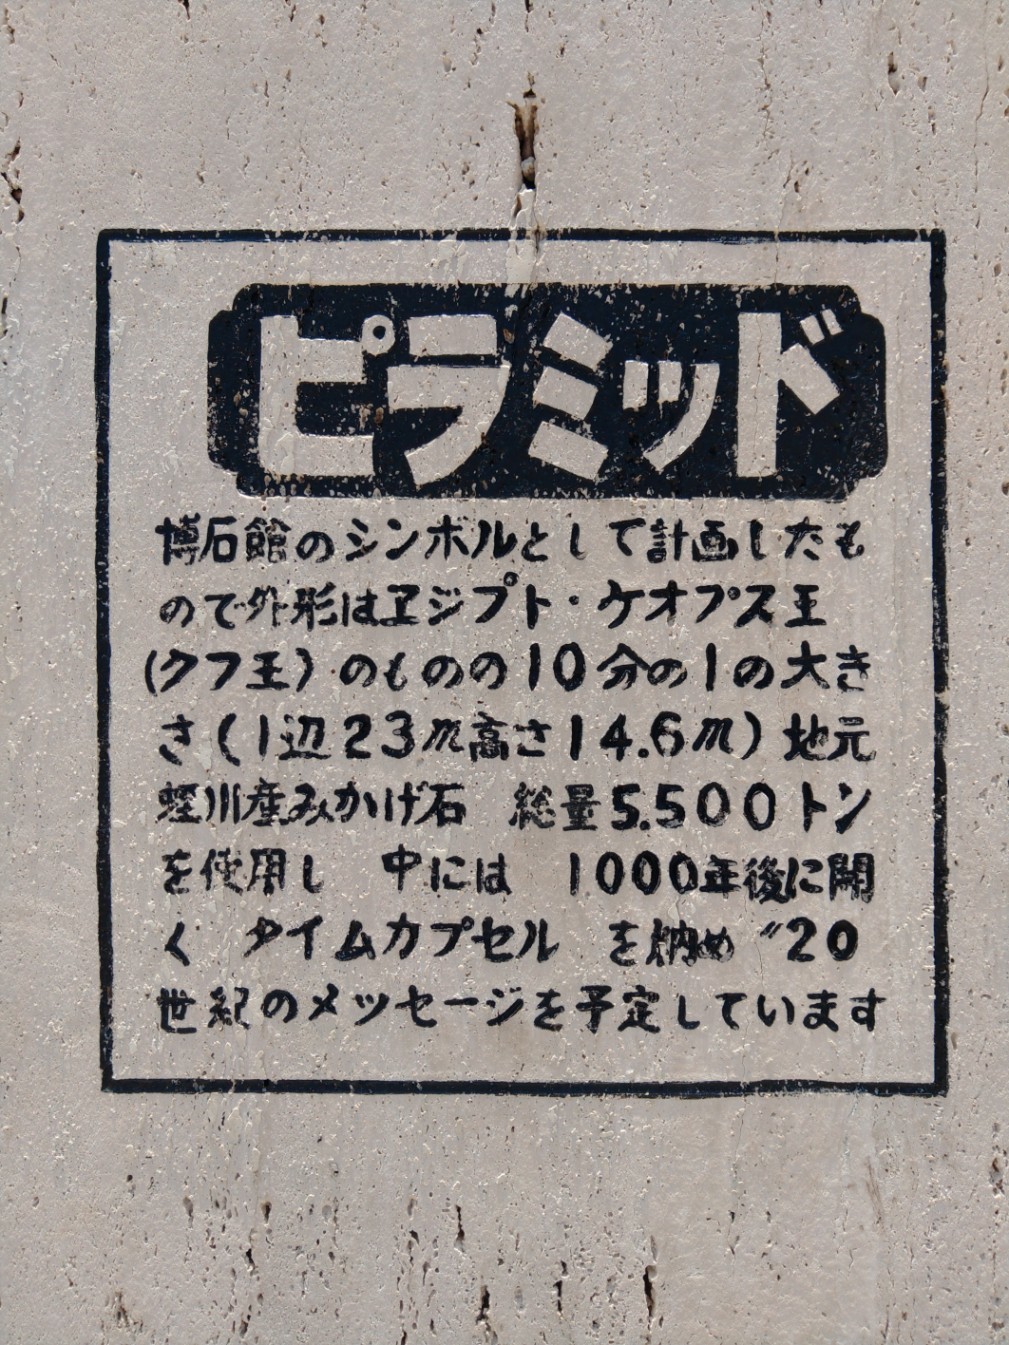 ピラミッド
博石館のシンボルとして計画したも
ので外形はエジプト・ケオプス王
(クフ王)のものの10分の1の大き
さ(1辺23m高さ14.6m)地元
蛭川産みかげ石 総量5.500トン
を使用し 中には 1000年後に開
く タイムカプセル を納め〃20
世紀のメッセージを予定しています